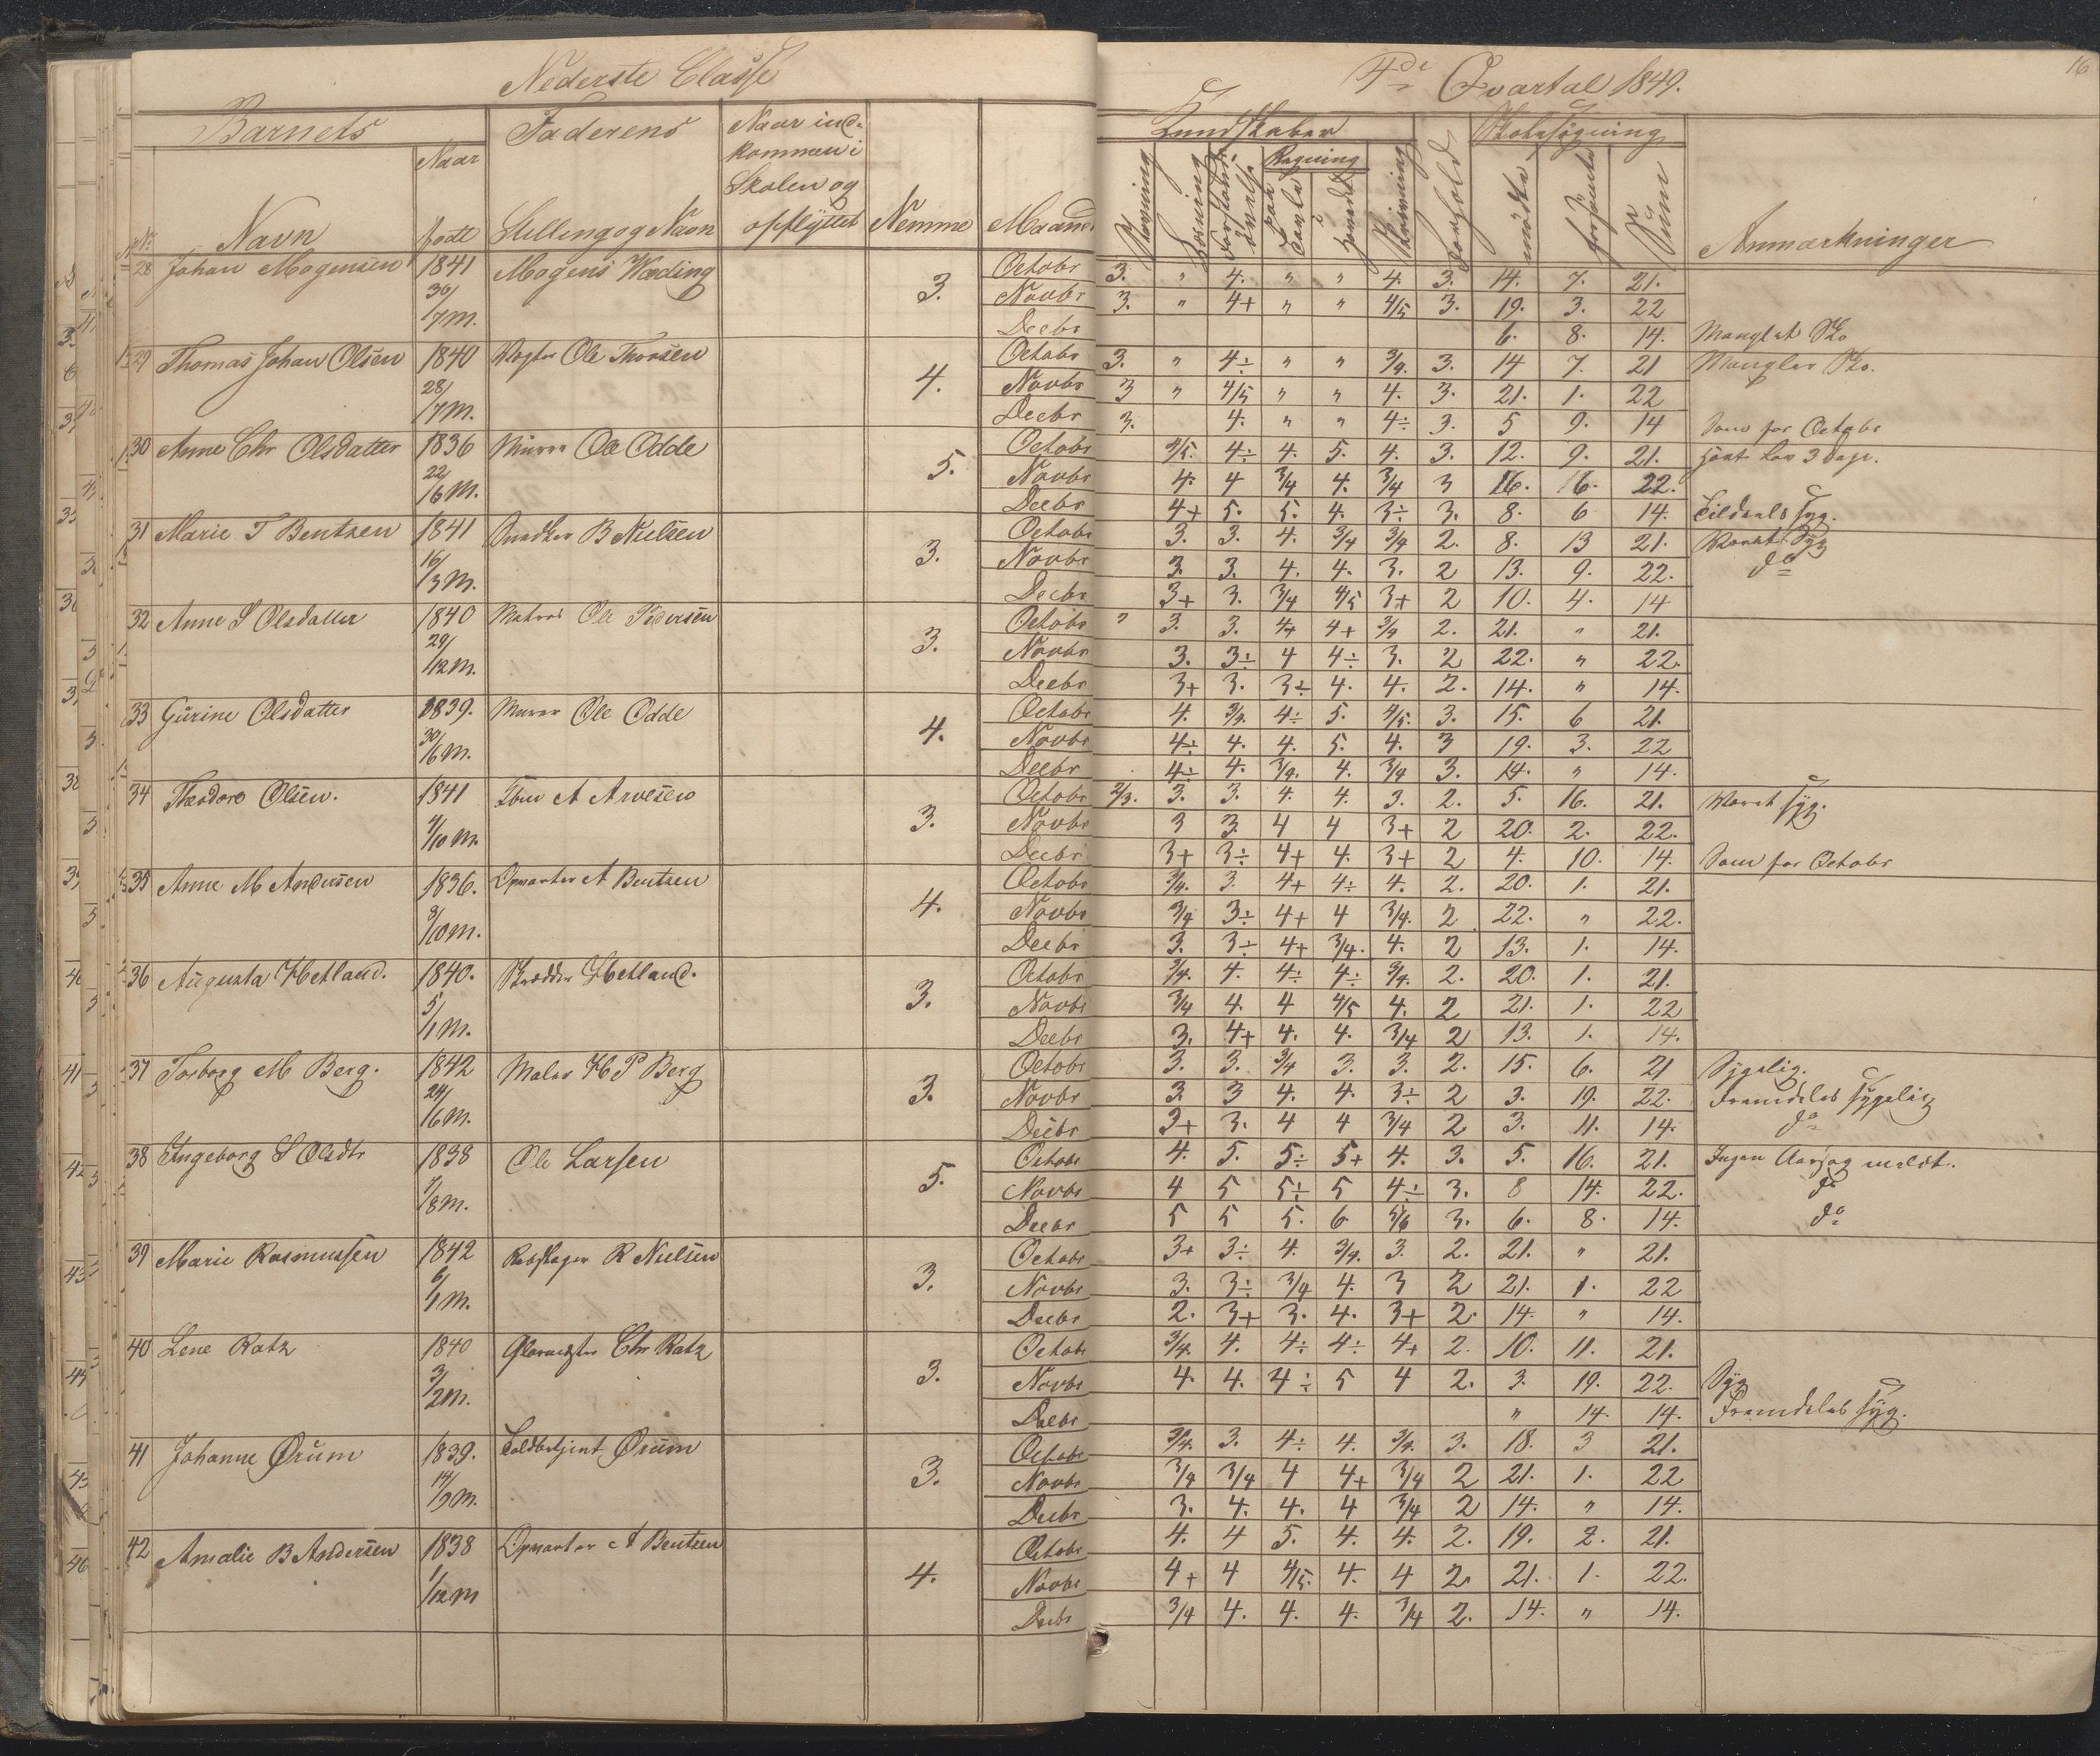 Nederste Classe
4de Qvartal 1849.
16
Barnets
Faderens
Naar ind-
kommen i
Skolen og
opflyttet
Nr.
Navn
Naar
født
Stilling og Navn
Nemme
Maaned
Kundskaber
Stavning
Læsning
Forstands-
øvelse
Regning
paa
Tavle
i
Hovedet
Skrivning
Forhold
Skolesøgning
mødte
forsømte
Sum
Anmærkninger
28 Johan Mogensen 1841 Mogens Wærding 3. Octobr 3. " 4. " " 4. 3. 14. 7. 21.
30/7 M. Novbr 3. " 4+ " " 4/5 3. 19. 3. 22
Decbr 6. 8. 14. Manglet Sko
29 Thomas Johan Olsen 1840 Vægter Ole Thorsen 4. Octobr 3. " 4÷ " " 3/4. 3. 14 7. 21 Mangler Sko.
28/7 M. Novbr 3 " 4/5 " " 4. 3. 21. 1. 22
Decbr 3. 4. " " 4÷ 3. 5 9. 14 Som for Octobr
30 Anne Chr Olsdatter 1836 Murer Ole Odde 5. Octobr 4/5. 4÷ 4. 5. 4. 3. 12. 9. 21. havt Lov 3 Dage.
22/6 M. Novbr 4. 4 3/4 4. 3/4 3 16. 16. 22.
Decbr 4+ 5. 5. 4. 3÷ 3. 8. 6 14. Tildeels syg.
31 Marie T Bentzen 1841 Snedker B Nielsen 3. Octobr 3. 3. 4. 3/4 3/4 2. 8. 13 21. Været Syg
16/3 M. Novbr 3. 3. 4. 4. 3. 2 13. 9. 22. do
Decbr 3+ 3. 3/4 4/5 3+ 2 10. 4. 14
32 Anne S Olsdatter 1840 Matros Ole Pedersen 3. Octobr " 3. 3. 4+ 4+ 3/4 2. 21. " 21.
29/12 M. Novbr 3. 3÷ 4 4÷ 3. 2 22. " 22.
Decbr 3+ 3. 3÷ 4. 4. 2. 14. " 14.
33 Gurine Olsdatter 1839. Murer Ole Odde 4. Octobr 4. 3/4. 4÷ 5. 4/5. 3. 15. 6 21.
30/6 M. Novbr 4÷ 4. 4. 5. 4. 3 19. 3. 22
Decbr 4÷ 4. 3/4. 4. 3/4 3. 14. " 14.
34 Theodore Olsen. 1841 A Arvesen 3. Octobr 2/3. 3. 3. 4. 4. 3. 2. 5. 16. 21. Været syg.
4/10 M. Novbr 3 3. 4 4 3+ 2 20. 2. 22.
Decbr 3+ 3÷ 4+ 4. 3+ 2 4. 10. 14. Som for Octobr
35 Anne M Andersen 1836. Opvarter A Bentzen 4. Octobr 3/4. 3. 4+ 4÷ 4. 2. 20. 1. 21.
8/10 M. Novbr 3/4 3÷ 4+ 4 3/4. 2 22. " 22.
Decbr 3. 3÷ 4+ 3/4. 4. 2 13. 1. 14.
36 Augusta Hetland. 1840. Skrædder Hetland. 3. Octobr 3/4. 4. 4÷ 4÷ 3/4. 2. 20. 1. 21.
5/1 M. Novbr 3/4 4. 4 4/5 4. 2 21. 1. 22
Decbr 3. 4+ 4. 4. 3/4 2 13. 1. 14.
37 Torborg M Berg. 1842 Maler H P Berg 3. Octobr 3. 3. 3/4 3. 3. 2. 15. 6. 21 Sygelig.
24/6 M. Novbr 3 3 4. 4. 3÷ 2 3. 19. 22. Fremdeles sygelig
Decbr 3+ 3. 4 4 3/4 2 3. 11. 14. do
38 Ingeborg S Olsdtr 1838 Ole Larsen 5. Octobr 4. 5. 5÷ 5+ 4. 3. 5. 16. 21. Ingen Aarsag meldt.
7/8 M. Novbr 4 5 5÷ 5 4÷ 3. 8 14. 22. do
Decbr 5 5 5. 6 5/6 3. 6. 8. 14. do
39 Marie Rasmussen 1842 Rebslager R Nielsen 3. Octobr 3+ 3÷ 4. 3/4. 3. 2. 21. " 21.
6/1 M. Novbr 3. 3÷ 3/4 4. 3 2 21. 1. 22
Decbr 2. 3+ 3. 4. 3+ 2. 14. " 14.
40 Lene Ratz 1840 Glarmester Chr Ratz 3. Octobr 3/4. 4. 4÷ 4÷ 4+ 2. 10. 11. 21.
3/2 M. Novbr 4. 4. 4÷ 5 4 2. 3. 19. 22. Syg
Decbr " 14. 14. Fremdeles syg.
41 Johanne Ørum 1839. Toldbetjent Ørum 3. Octobr 3/4. 3. 4÷ 4. 3/4. 3. 18. 3 21.
14/9 M. Novbr 3/4 3/4 4 4+ 3/4 2 21. 1. 22
Decbr 3. 4. 4. 4 3/4 2 14. " 14.
42 Amalie B Andersen 1838 Opvarter A Bentzen 4. Octobr 4. 4 5. 4. 4. 2. 19. 2. 21.
1/12 M Novbr 4+ 4 4/5. 4. 4 2 21. 1. 22.
Decbr 3/4 4. 4. 4. 3/4 2. 14. " 14.